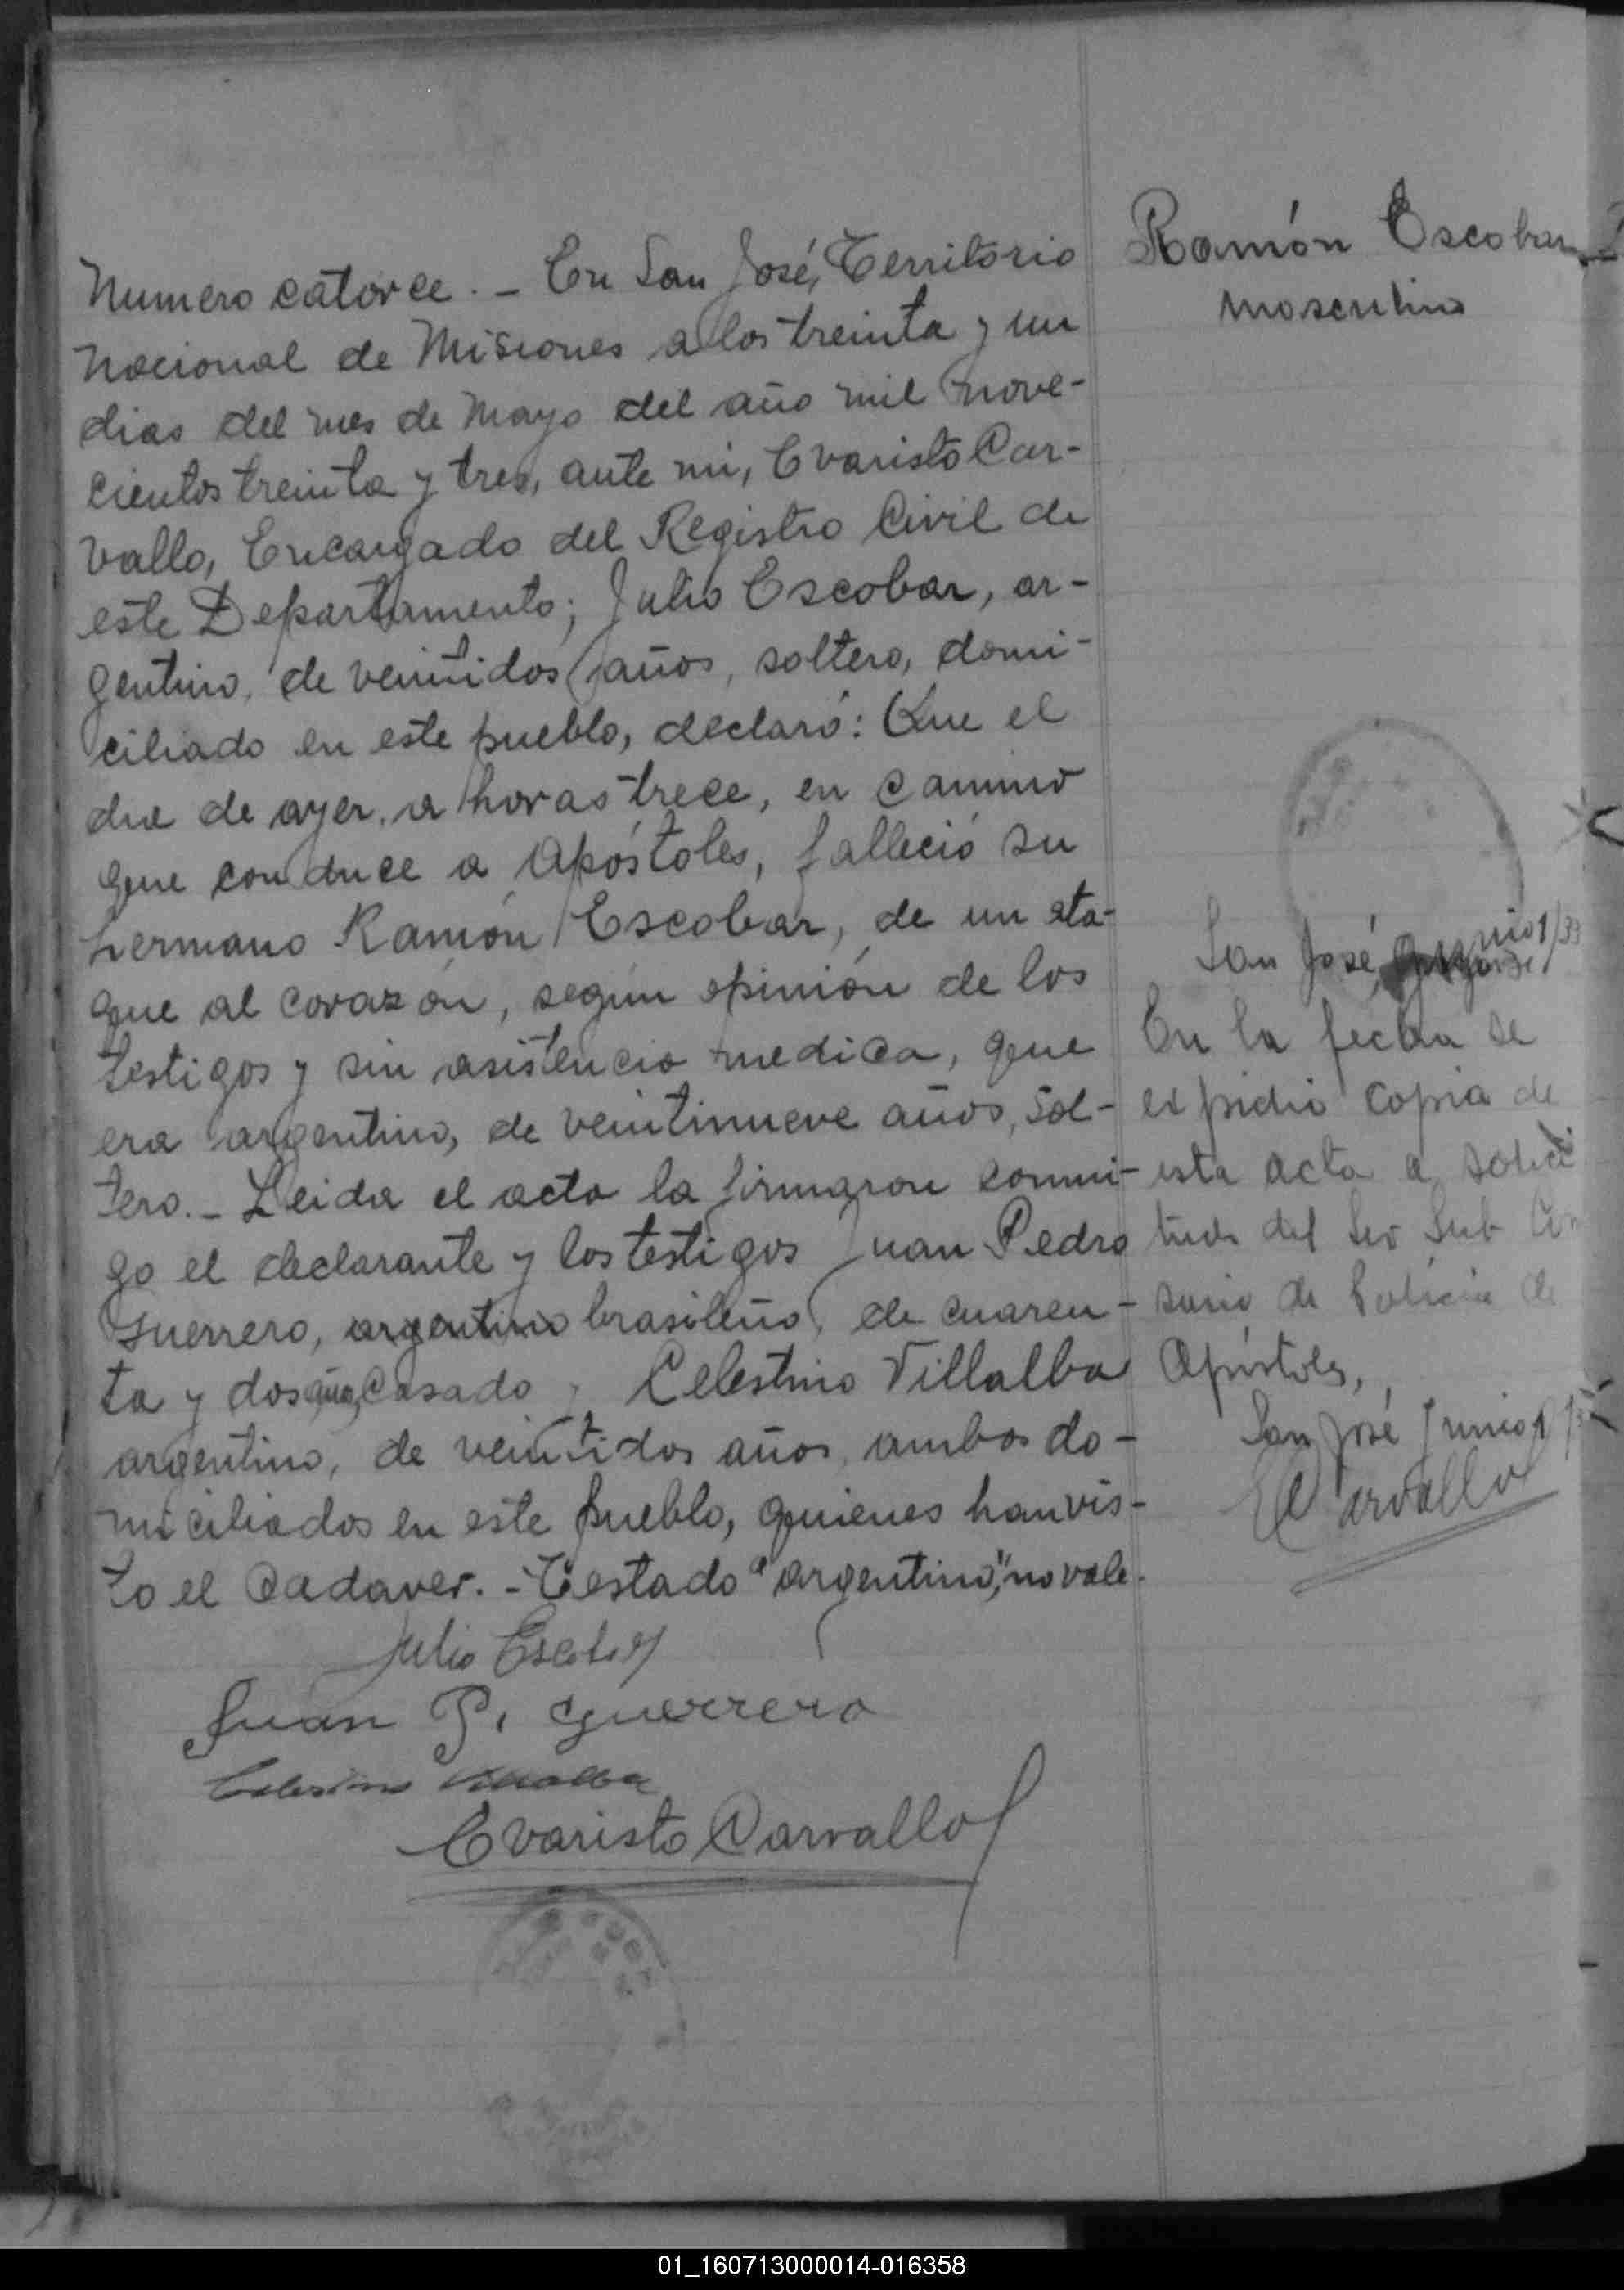 Numero catorce. - En San José, Territorio
Nacional de Misiones a los treinta y un
dias del mes de Mayo del año mil nove-
cientos treinta y tres, ante mi, Evaristo Car-
vallo, Encargado del Registro Civil de
este Departamento; Julio Escobar, ar-
gentino, de veintidos años, soltero, domi-
ciliado en este pueblo, declaró: Que el
dia de ayer, a horas trece, en camino
que conduce a Apóstoles, falleció su
hermano Ramón Escobar, de un ata-
que al corazón, según opinión de los
testigos y sin asistencia medica, que
era argentino, de veintinueve años, sol-
tero. - Leida el acta la firmaron conmi-
go el declarante y los testigos Juan Pedro
Guerrero, argentino brasileño, de cuaren-
ta y dos años, casado y Celestino Villalba
argentino, de veintidos años, ambos do-
miciliados en este pueblo, quienes han vis-
to el cadaver. - Testado "argentino," no vale.
Julio Escobar
Juan P. Guerrero
Celestino Villalba
Evaristo Carvallo
Ramón Escobar
masculino
San José, Junio 1/33
En la fecha se
expidió copia de
esta acta a solici
tud del Sr Sub Co
sario de Policia de
Apóstoles,
San José Junio 1/
E Carvallo
01_160713000014-016358